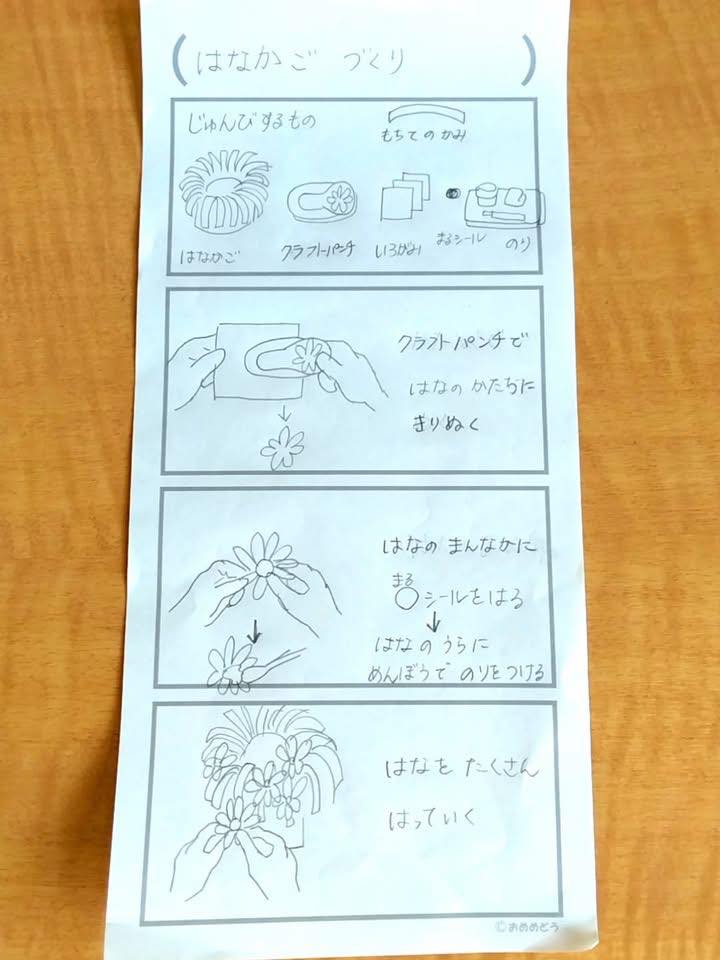 (はなかご づくり)
じゅんびするもの
もちてのかみ
はなかご
クラフトパンチ
いろがみ
まるシール
のり
クラフトパンチで
はなの かたちに
きりぬく
はなの まんなかに
まる
○シールをはる
↓
はなのうらに
めんぼうで のりをつける
はなを たくさん
はっていく
©おめめどう